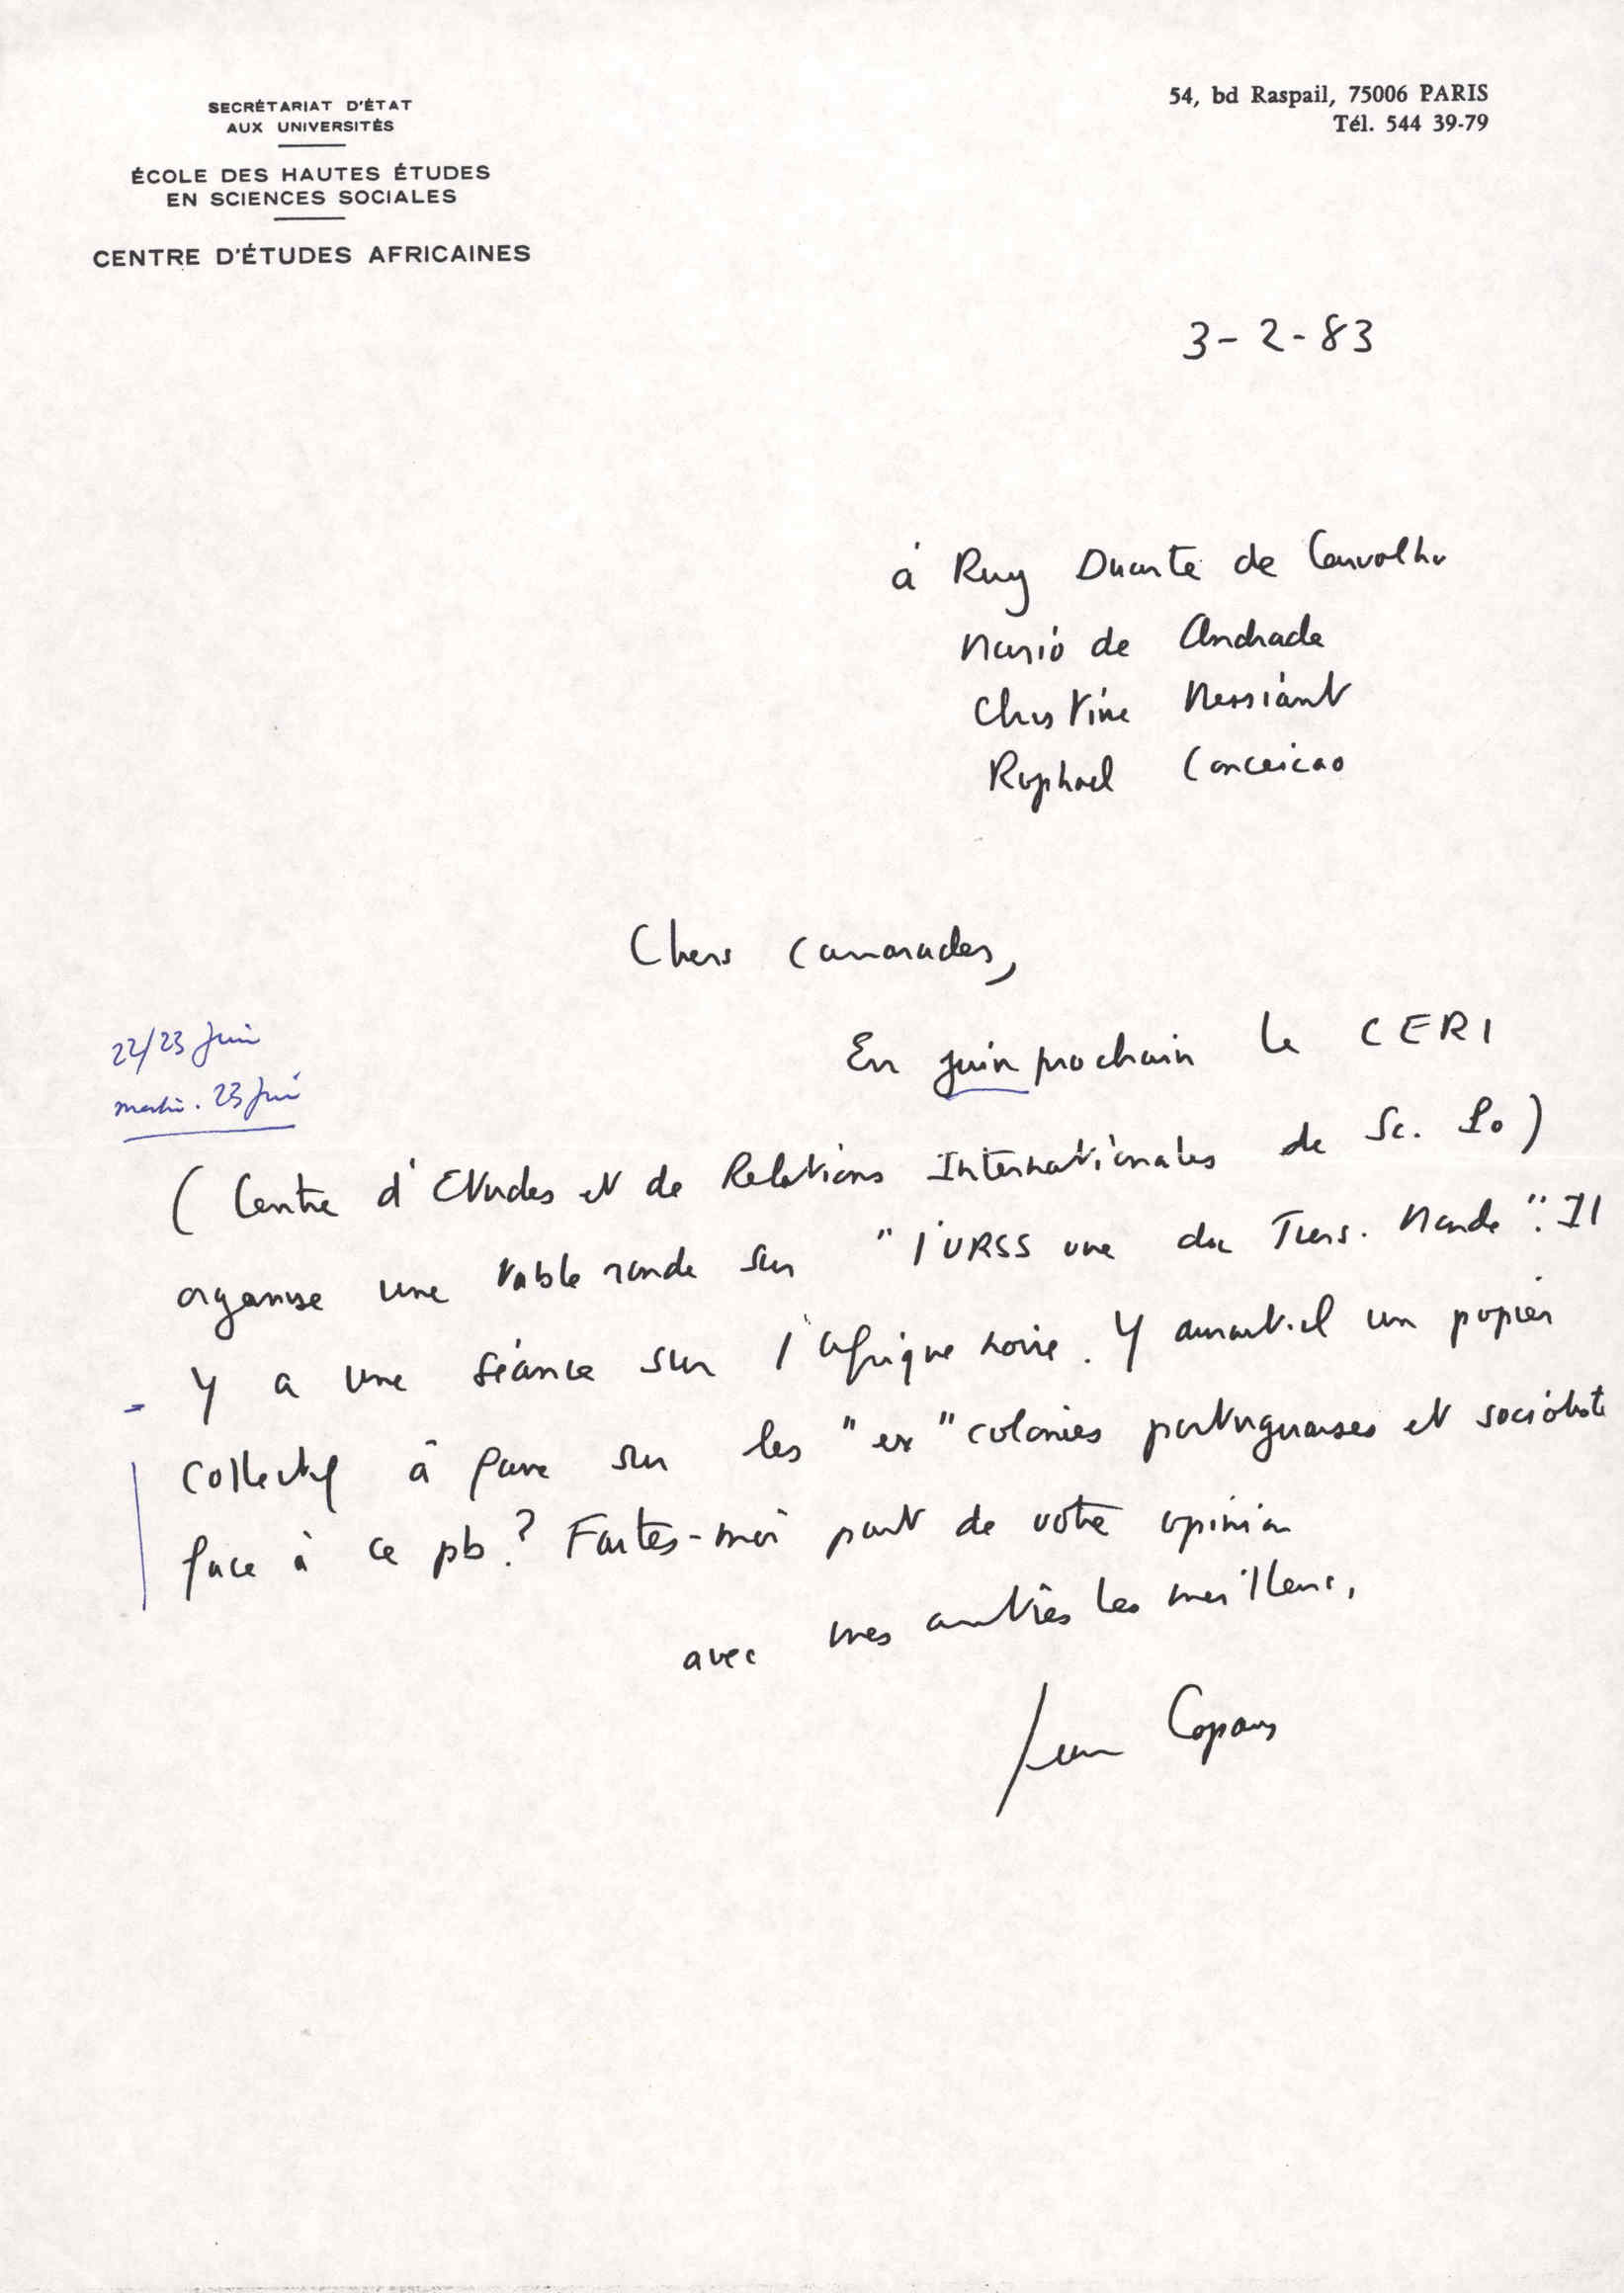 SECRÉTARIAT D'ÉTAT
AUX UNIVERSITÉS
ÉCOLE DES HAUTES ÉTUDES
EN SCIENCES SOCIALES
CENTRE D'ÉTUDES AFRICAINES
54, bd Raspail, 75006 PARIS
Tél. 544 39-79
3-2-83
à Ruy Duarte de Carvalho
Mario de Andrade
Christine Messiant
Raphael Conceicao
Chers camarades,
22/23 Juin
matin. 23 Juin
En juin prochain le CERI
(Centre d'Etudes et de Relations Internationales de Sc. Po)
organise une table ronde sur "l'URSS vue du Tiers. Monde". Il
y a une séance sur l'Afrique noire. Y aurait-il un papier
collectif à faire sur les "ex" colonies portugaises et socialiste
face à ce pb.? Faites-moi part de votre opinion
avec mes amitiés les meilleures,
Jean Copans